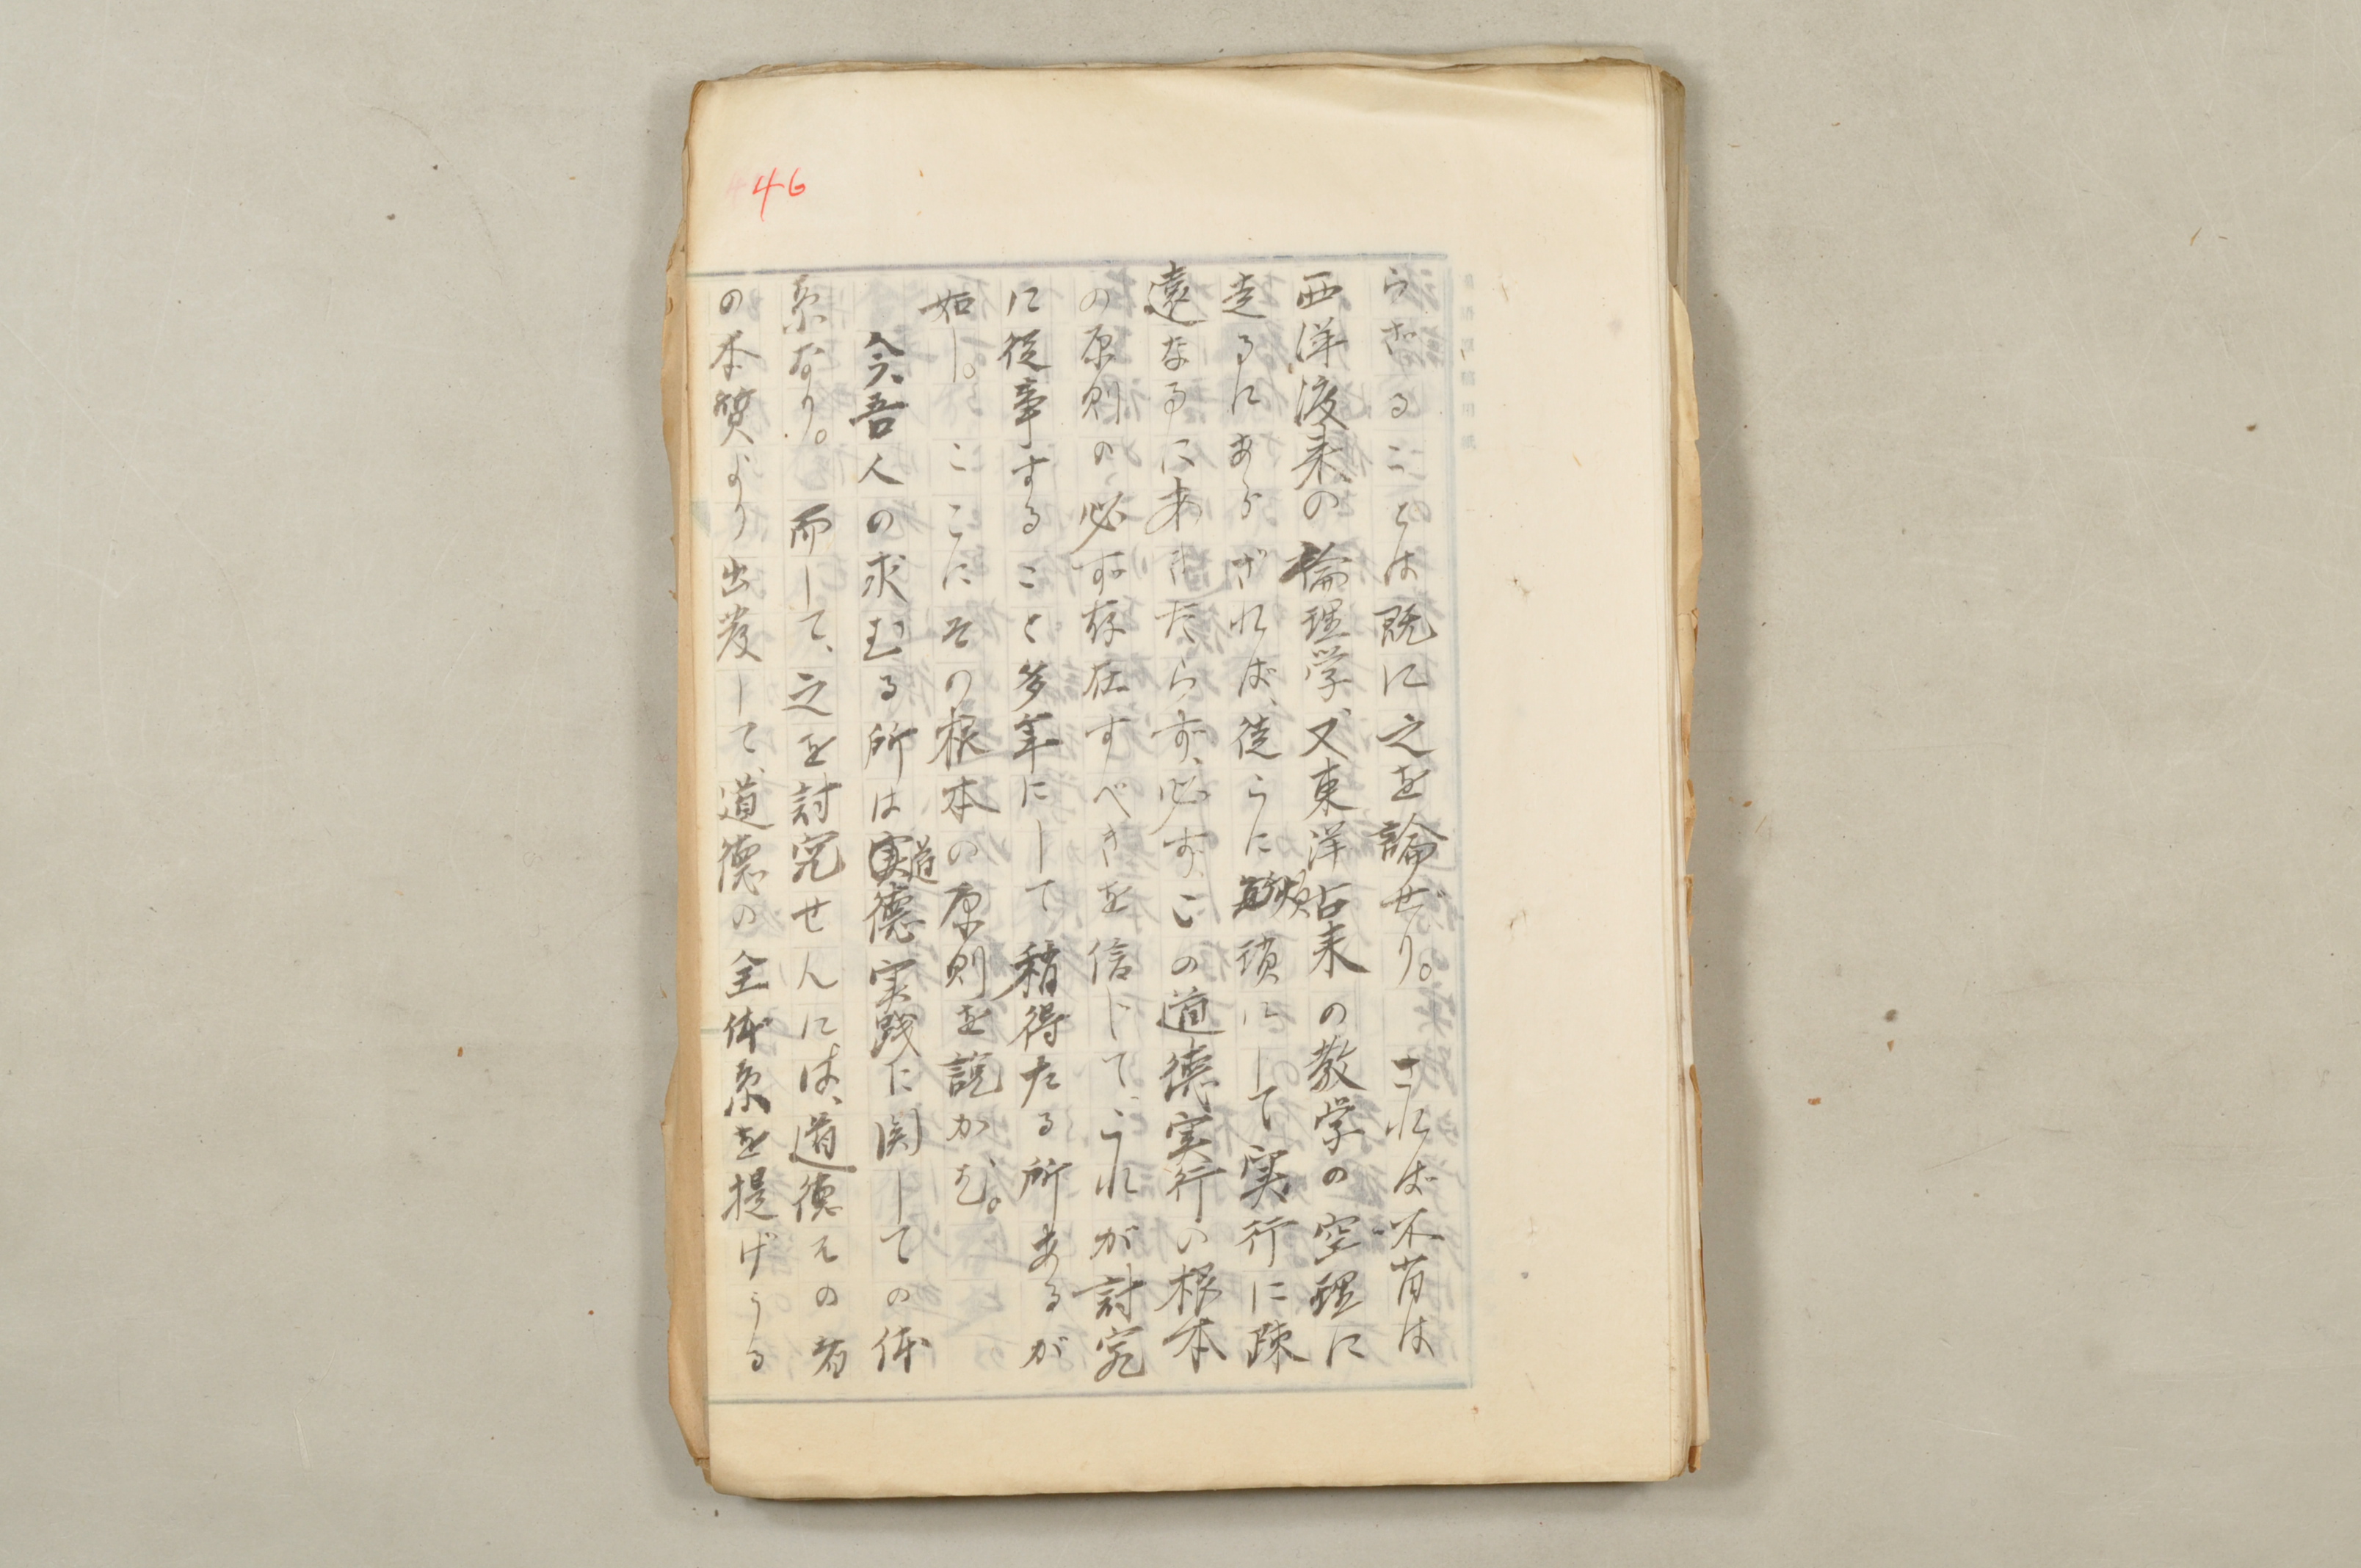 46
らざることは既に之を論ぜり。されば不肖は
西洋渡来の倫理学、又東洋古来の教学の空理に
走るにあらざれば、徒らに煩瑣にして実行に疎
遠なるにあきたらず、必ずこの道徳実行の根本
の原則の必ず存在すべきを信じて、これが討究
に従事すること多年にして稍得たる所あるが
如し。ここにその根本の原則を説かむ。
今、吾人の求むる所は道徳実践に関しての体
系なり。而して、之を討究せんには、道徳その者
の本質より出発して、道徳の全体系を提げうる